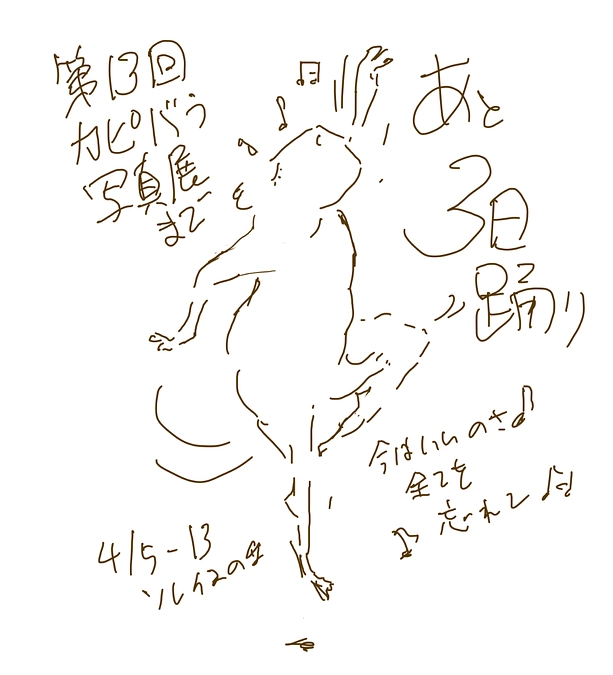 第13回
カピバラ
写真展
まで
あと
3日
踊り
今はいいのさ♪
全てを
忘れて
4/5-13